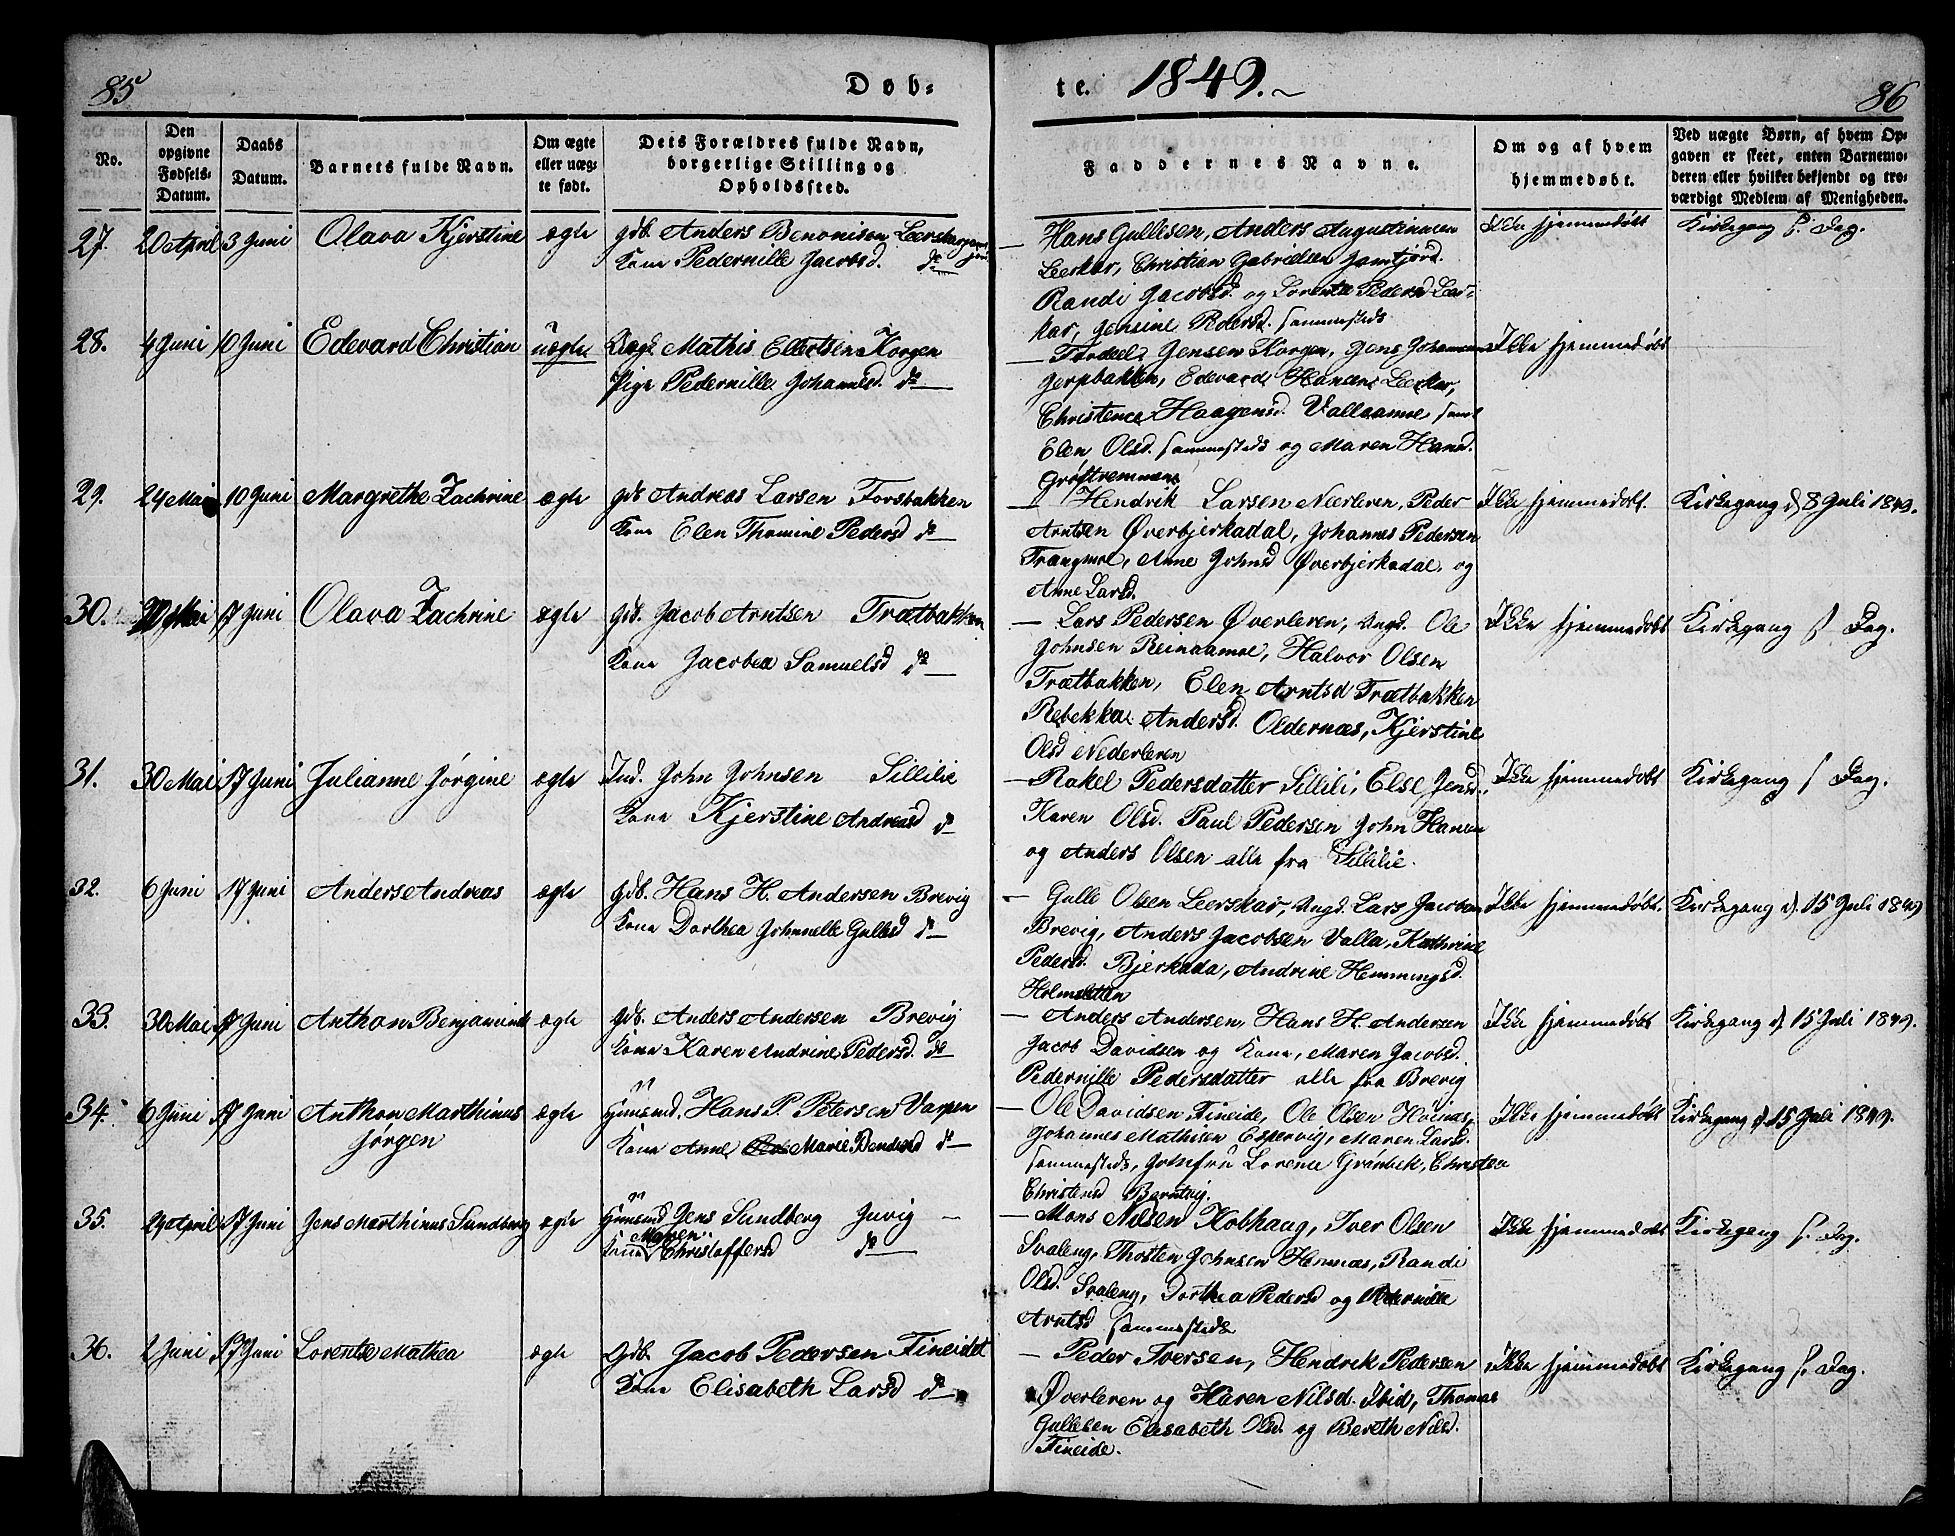 85
Døb-
te. 1849.~
86
No.
Den opgivne Fødsels-Datum.
Daabs Datum.
Barnets fulde Navn.
Om ægte eller uæg-te født.
Dets Forældres fulde Navn, borgerlige Stilling og Opholdssted.
Faddernes Navne.
Om og af hvem hjemmedøbt.
Ved uægte Børn, af hvem Op-gaven er skeet, enten Barnemo-deren eller hvilket bekjendt og tro-værdigt Medlem af Menigheden.
27. 20 April 3 Juni Olava Kjerstine ægte gdb. Anders Benonisen Leerskar
Kone Pedernille Jacobsd. do
— Hans Gullesen, Anders Augustinusen
Leerskar, Christian Gabrielsen
Randi Jacobsd. og Lorentse Pedersd Leer-
kar, Jensine Pedersd. sammesteds
Ikke hjemmedøbt
Kirkegang s. Dag.
28. 4 Juni 10 Juni Edevard Christian uægte Mathis Ellertsen Korgen
Pige Pedernille Johannsd. do
— Jensen Korgen, Jens Johannesen
Jerpbakken, Edevard Hansen Leerskar,
Christence Haagensd. Vallaamoe samt
Elen Olsd. sammesteds og Maren Hansd.
Grøftremmen
Ikke hjemmedøbt
29. 24 Mai 10 Juni Margrethe Zachrine ægte gdb Andreas Larsen Forsbakken
Kone Elen Thomine Pedersd do
— Hendrik Larsen Neerleren, Peder
Arntsen Øverbjerkadal, Johannes Pedersen
Trangmoe, Anne Johnsd Øverbjerkadal, og
Anne Larsd.
Ikke hjemmedøbt.
Kirkegang d. 8 Juli 1849.
30. 20 Mai 17 Juni Olava Zachrine ægte gdb. Jacob Arntsen Trætbakken
Kone Jacobea Samuelsd do
— Lars Pedersen Øverleren, Ungd. Ole
Johnsen Reinaamoe, Halvor Olsen
Trætbakken, Elen Arntsd Trætbakken
Rebekka Andersd. Oldernæs, Kjerstine
Olsd Nederleren
Ikke hjemmedøbt
Kirkegang s. Dag.
31. 30 Mai 17 Juni Julianne Jørgine ægte Ind. John Johnsen Sillilie
Kone Kjerstine Andreasd do
— Rakel Pedersdatter Sillili, Else Jensd.,
Karen Olsd. Paul Pedersen John Hansen
og Anders Olsen alle fra Sillilie.
Ikke hjemmedøbt
Kirkegang s. Dag.
32. 6 Juni 17 Juni Anders Andreas ægte gdb. Hans H. Andersen Brevig
Kone Dorthea Johnelle Gullesd do
— Gulle Olsen Leerskar, Ungd. Lars Jacobsen
Brevig, Anders Jacobsen Valla, Kathrine
Pedersd. Bjerkada, Andrine Hemmingsd.
Holmslettin
Ikke hjemmedøbt.
Kirkegang d. 15 Juli 1849
33. 30 Mai 17 Juni Anthon Benjamin ægte gdb. Anders Andersen Brevig
Kone Karen Andrine Pedersd. do
— Anders Andersen, Hans H. Andersen
Jacob Davidsen og Kone, Maren Jacobsd.
Pedernille Pedersdatter alle fra Brevig
Ikke hjemmedøbt
Kirkegang d. 15 Juli 1849.
34. 6 Juni 17 Juni Anthon Marthinus
Jørgen ægte Huusmd. Hans P. Petersen Varpen
Kone Anne Marie Bendixd do
— Ole Davidsen Fineide, Ole Olsen Høinæs,
Johannes Mathisen Espervig, Maren Larsd.
sammesteds, Jomfru Lorence Grønbek, Christea
Christensd Barntvig.
Ikke hjemmedøbt
Kirkegang d. 15 Juli 1849.
35. 29 April 17 Juni Jens Marthinus Sundberg ægte Huusmd Jens Sundberg Juvig —
Kone Maren Christoffersd do
— Mons Nilsen Kobhaug, Iver Olsen
Svaleng, Thosten Johnsen Hemnæs, Randi
Olsd. Svaleng, Dorthea Pedersd og Pedernille
Arntsd sammesteds
Ikke hjemmedøbt
Kirkegang s. Dag.
36. 2 Juni 17 Juni Lorentse Mathea ægte gdb. Jacob Pedersen Fineidet
Kone Elisabeth Larsd do
— Peder Iversen, Hendrik Pedersen
Øverleren og Karen Nilsd. Ibid, Thomas
Gullesen Elisabeth Olsd. og Bereth Nilsd.
Fineide.
Ikke hjemmedøbt
Kirkegang s. Dag.